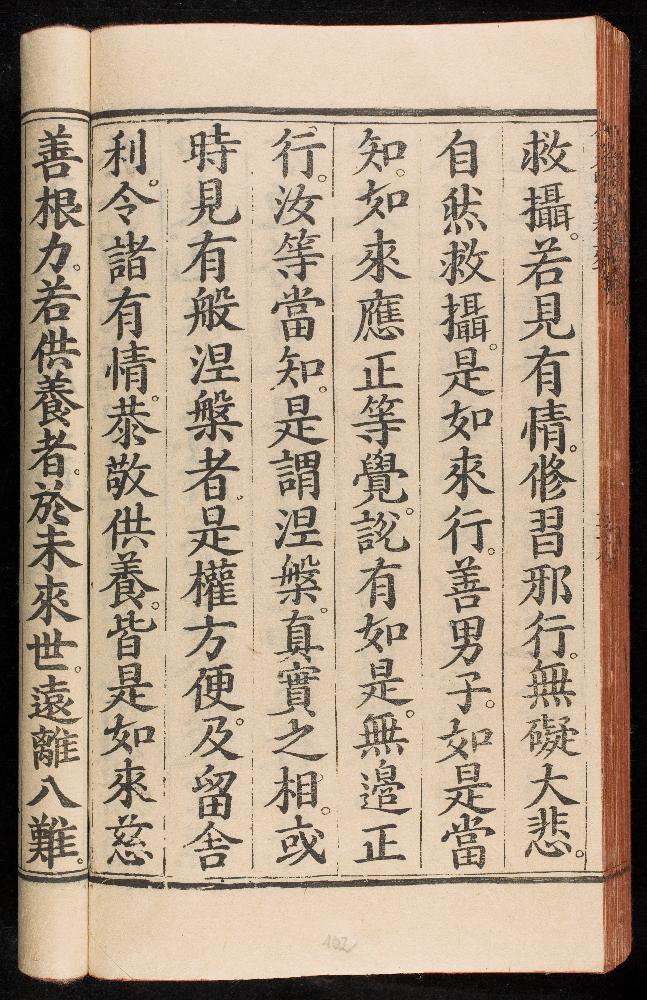 救攝。若見有情。修習邪行。無礙大悲。
自然救攝。是如來行。善男子。如是當
知。如來應正等覺。說有如是。無邉正
行。汝等當知。是謂涅槃。真實之相。或
時見有般涅槃者。是權方便。及留舍
利。令諸有情。恭敬供養。皆是如來慈
善根力。若供養者。於未來世。遠離八難。
102